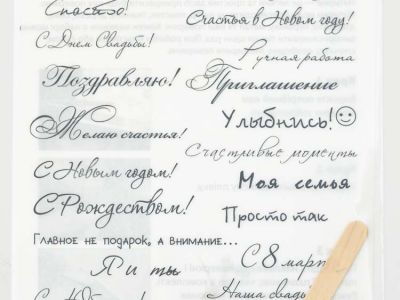 Спасибо!
С Днем Свадьбы!
Поздравляю!
Желаю счастья!
С Новым годом!
С Рождеством!
Главное не подарок, а внимание...
Я и ты
Счастья в Новом году!
Ручная работа
Приглашение
Улыбнись!
Счастливые моменты
Моя семья
Просто так
С 8 март
Наша